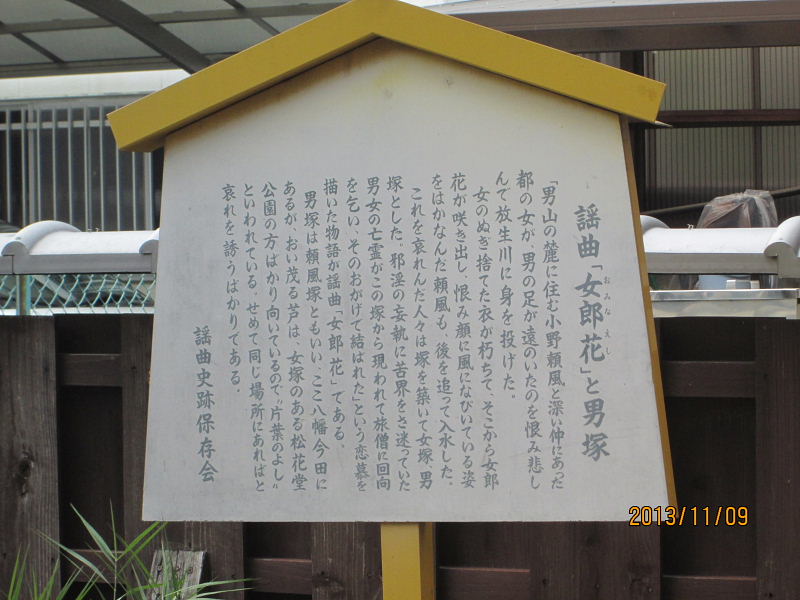 謡曲「女郎花」と男塚
おみなえし
「男山の麓に住む小野頼風と深い仲にあった
都の女が、男の足が遠のいたのを恨み悲し
んで放生川に身を投げた。
女のぬぎ捨てた衣が朽ちて、そこから女郎
花が咲き出し、恨み顔に風になびいている姿
をはかなんだ頼風も、後を追って入水した。
これを哀れんだ人々は塚を築いて女塚、男
塚とした。邪淫の妄執に苦界をさ迷っていた
男女の亡霊がこの塚から現われて旅僧に回向
を乞い、そのおかげで結ばれた」という恋慕を
描いた物語が謡曲「女郎花」である。
男塚は頼風塚ともいい、ここ八幡今田に
あるが、おい茂る芦は、女塚のある松花堂
公園の方ばかり向いているので〝片葉のよし〟
といわれている。せめて同じ場所にあればと
哀れを誘うばかりである。
謡曲史跡保存会
2013/11/09